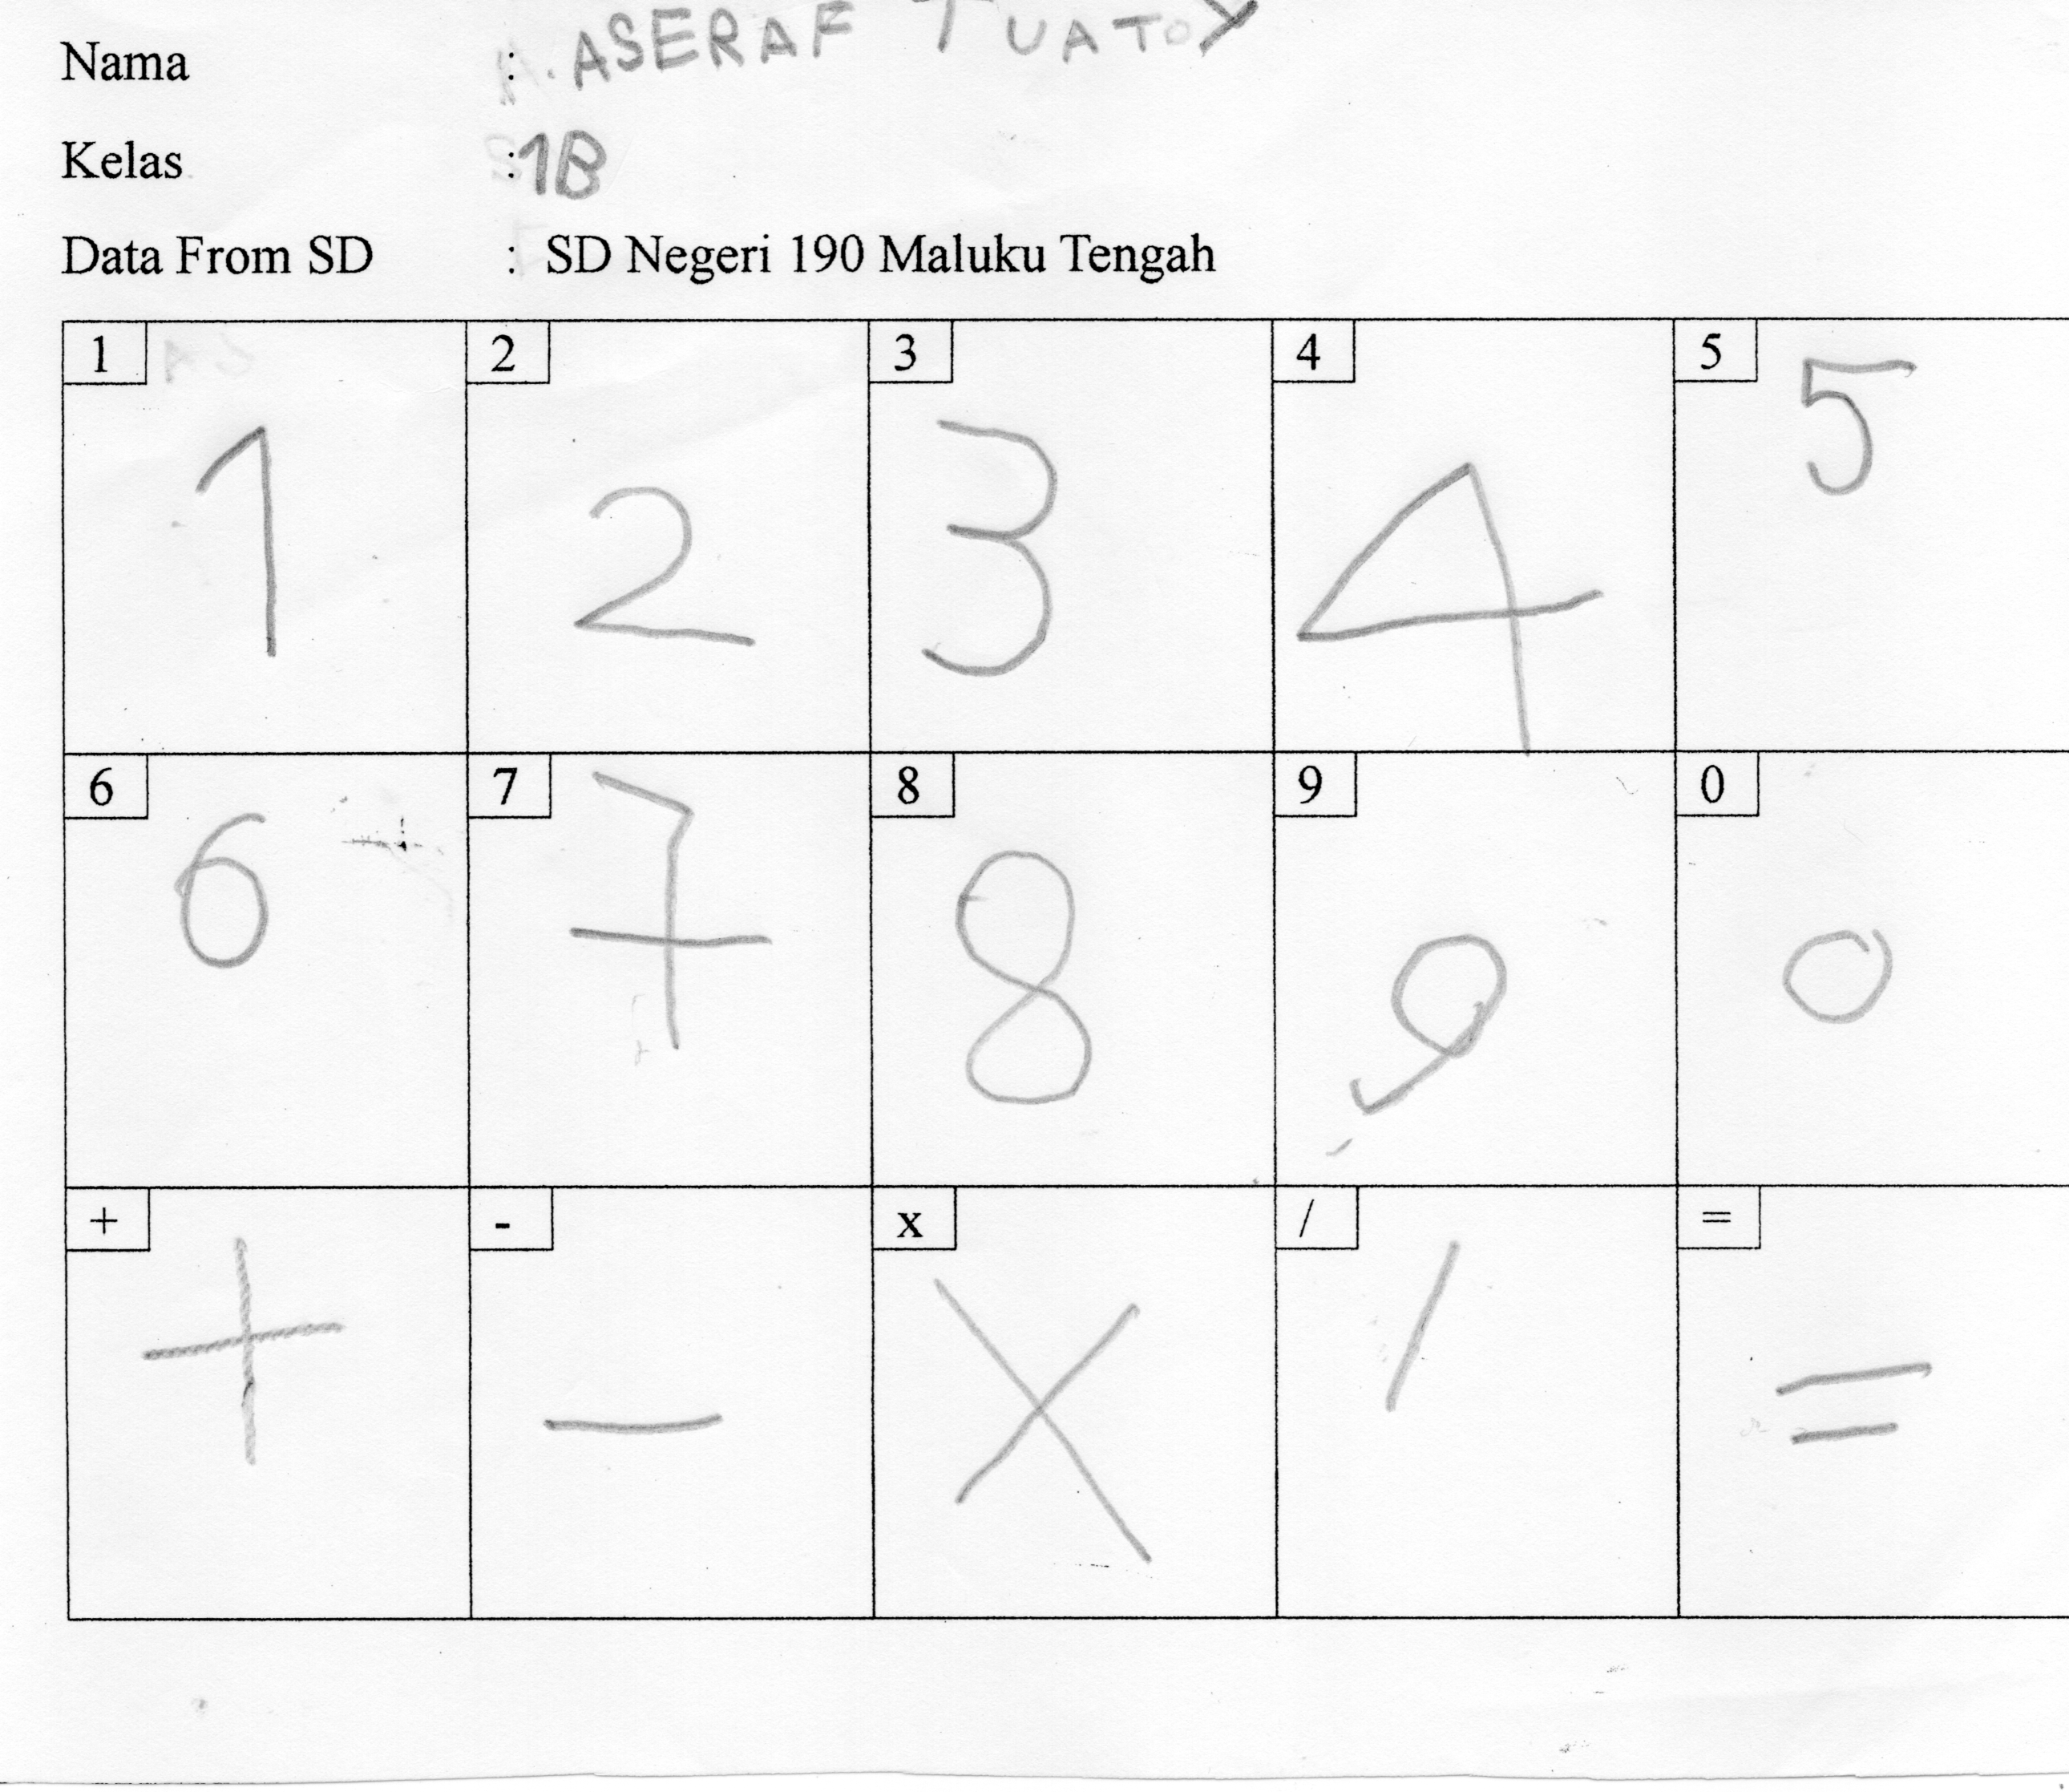 Nama : A. ASERAF TUATOY
Kelas : 1B
Data From SD : SD Negeri 190 Maluku Tengah
1 2 3 4 5
1 2 3 4 5
6 7 8 9 0
6 7 8 9 0
+ - x / =
+ - x / =